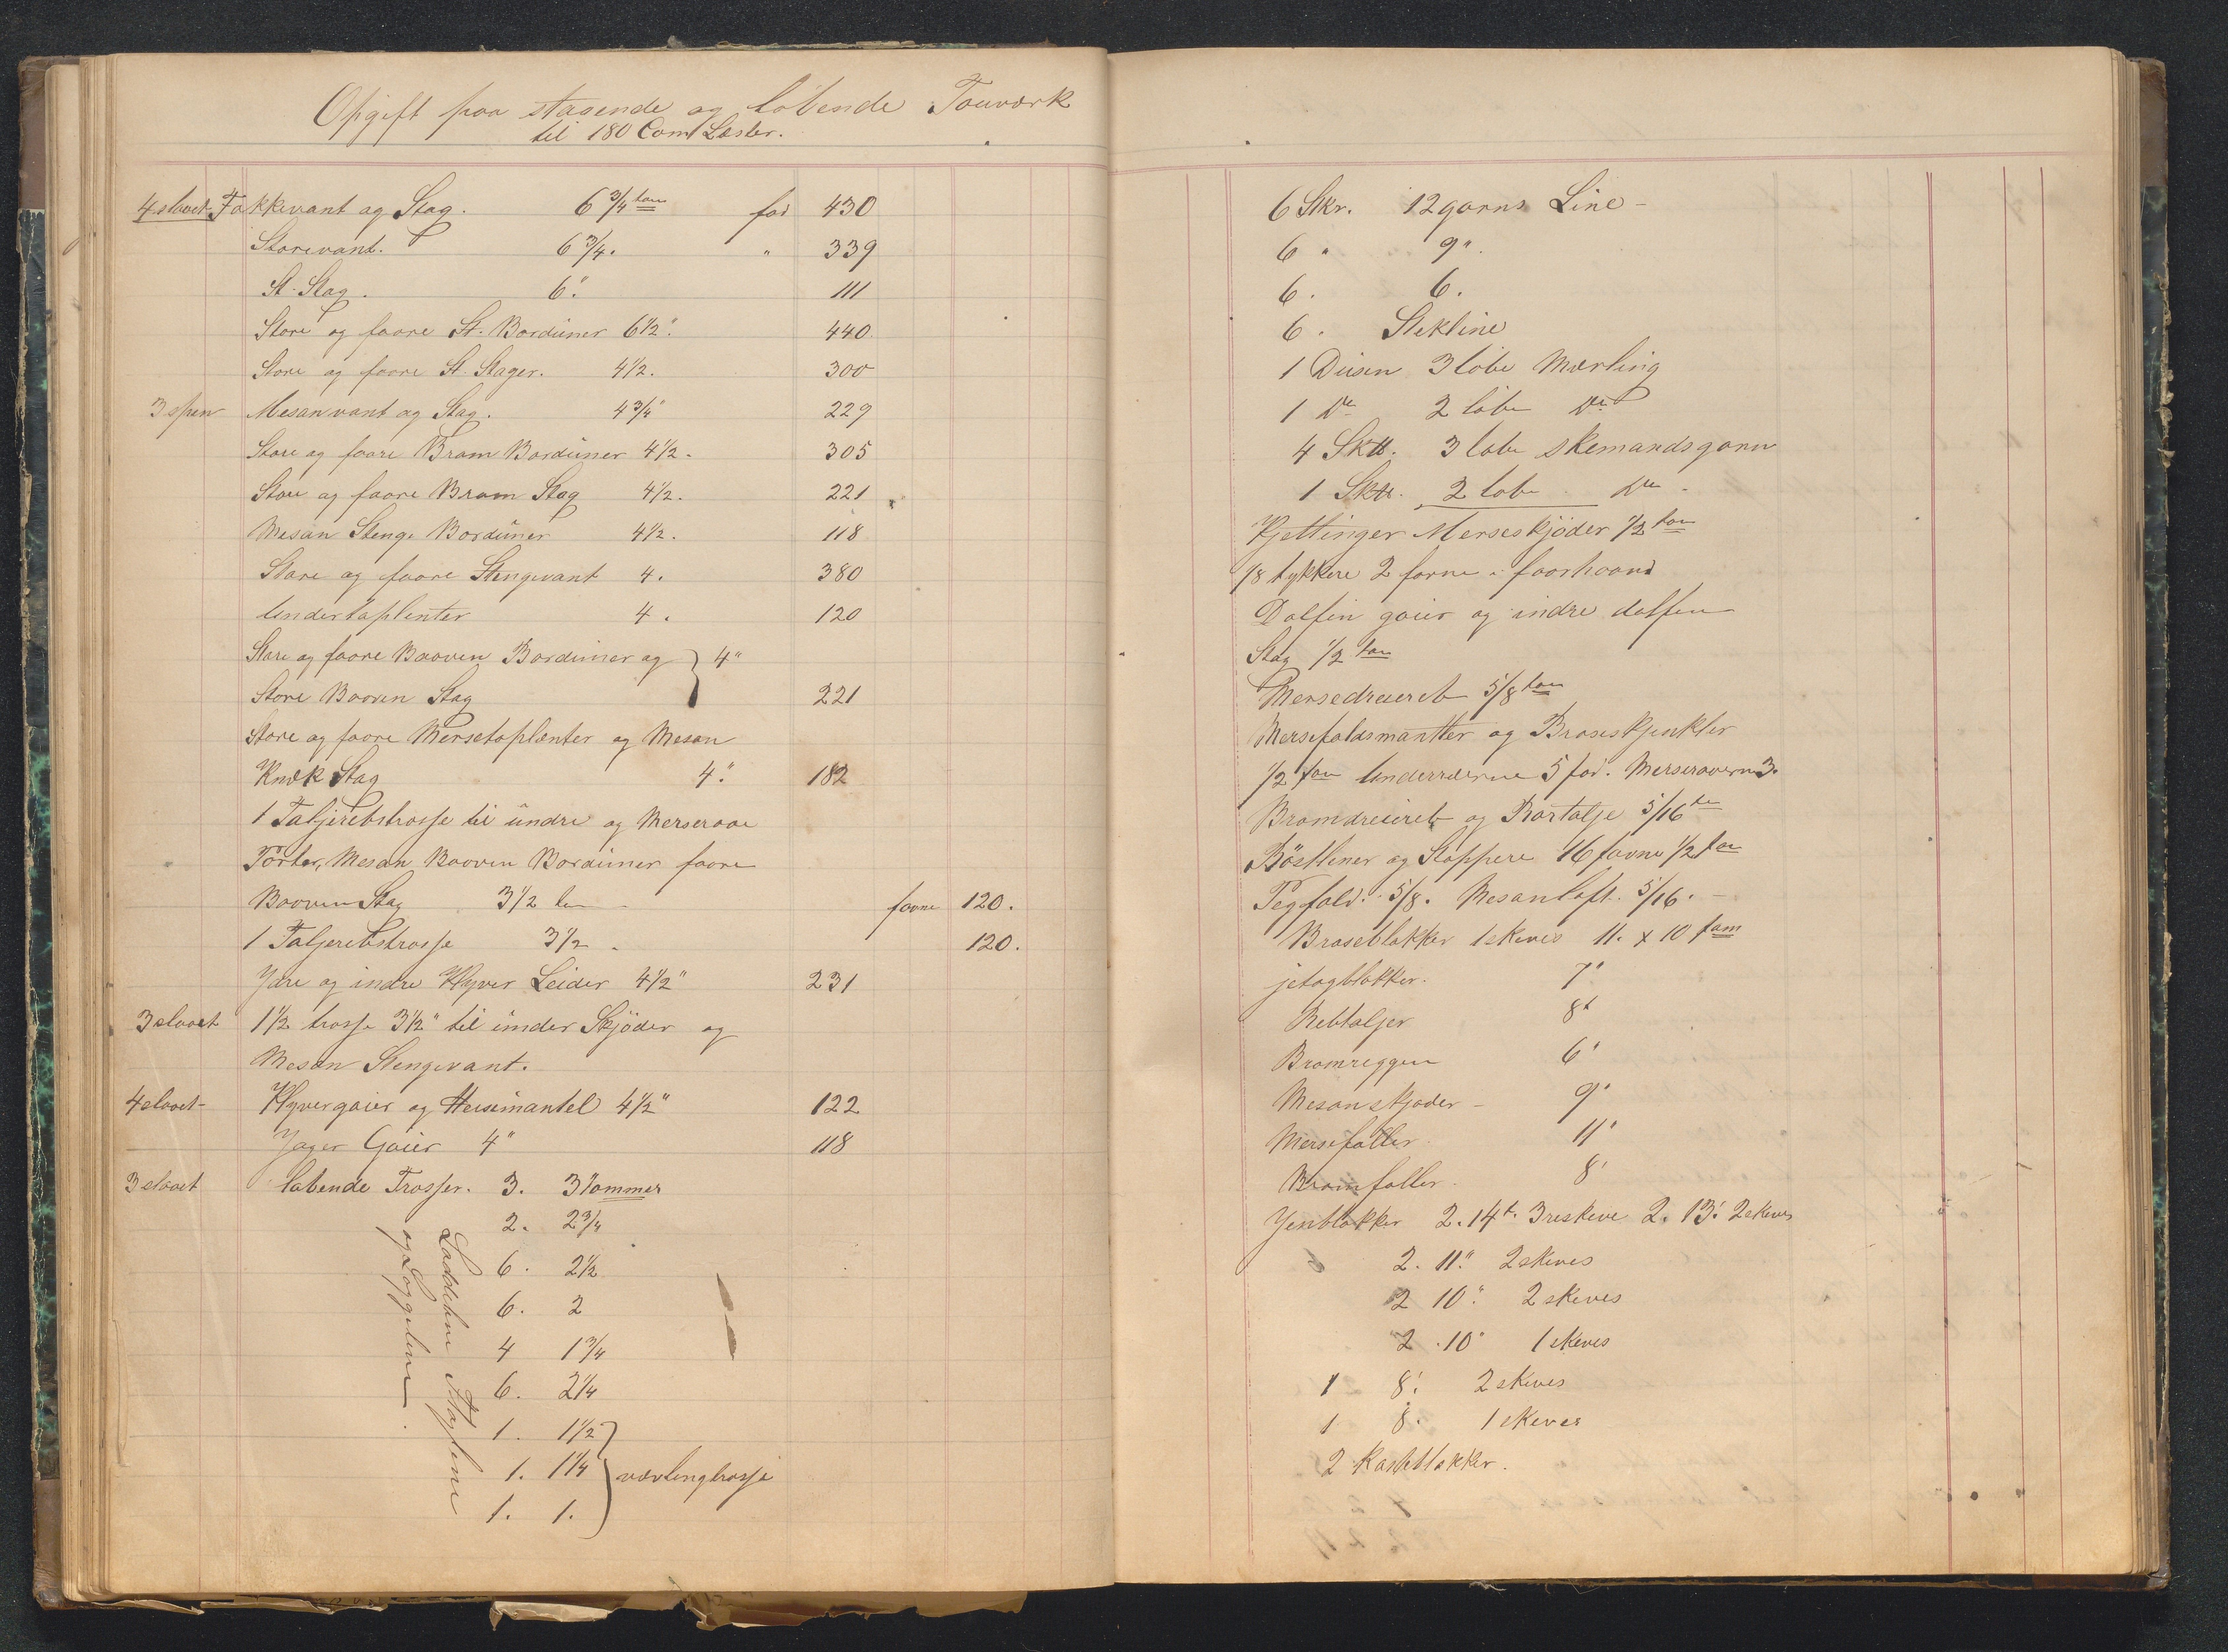 Opgift paa staaende og løbende Touværk
til 180 Com Læster.
4 slaaet Fokkevant og Stag. 6 3/4 tom fod 430
Storevant. 6 3/4. " 339
St. Stag. 6" 111
Store og faare St. Borduner 6 1/2" 440
Store og faare St. Stager. 4 1/2. 300
3 spen Mesanvant og Stag. 4 3/4" 229
Store og faare Bram Borduner 4 1/2. 305
Store og faare Bram Stag 4 1/2. 221
Mesan Stenge Borduner 4 1/2. 118
Store og faare Stengevant 4. 380
Undertoplenter 4. 120
Store og faare Booven Borduner og } 4"
Store Booven Stag 221
Store og faare Mersetoplenter og Mesan
Knæk Stag 4." 182
1 Taljerebstrosse til undre og Merseraae
Pærter, Mesan Booven Borduner faare
Booven Stag 3 1/2 favne 120.
1 Taljerebstrosse 3 1/2. 120.
Ydre og indre Klyver Leider 4 1/2" 231
3 slaaet 1 1/2 trosse 3 1/2" til under Skjøder og
Mesan Stengevant.
4 slaaet Klyvergaier og Heisemantel 4 1/2" 122
Jager Gaier 4" 118
3 slaaet løbende Trosser. 3. 3 Tommer
2. 2 3/4
6. 2 1/2
6. 2
4 1 3/4
6. 2 1/4
1. 1 1/2
1. 1 1/4 } vævlingtrosse
1. 1.
Loddeline Flagline
og Loggeline
6 Skr. 12 garns Line
6 " 9".
6. 6.
6. Stikline
1 Dusen 3 løbe Mærling
1 Do 2 løbe Do
4 Sktt. 3 løbe skemandsgarn
1 Sktt. 2 løbe Do
Kjettinger Merseskjøder 1/2 tom
1/8 tykkere 2 favne i faarhaand
Dolfin gaier og indre dolfin
Stag 1/2 tom
Mersedreiereb 5/8 tom
Mersefaldsmantler og Braseskjinkler
1/2 tom Underræerne 5 fod. Merseraaerne 3.
Bramdreiereb og Bortalje 5/16
Bøstliner og Stoppere 16 favne 1/2 tom
Pegfald. 5/8. Mesanløft. 5/16.
Braseblokker 1 skives 11. x 10 tom
jetogblokker. 7"
Rebtaljer 8"
Bramreggen 6"
Mesanskjøder 9"
Mersefaller 11"
Bramfaller. 8"
Jenblokker 2. 14". 3 reskive 2. 13" 2 skives
2. 11" 2 skives
2 10". 2 skives
2. 10" 1 skives
1 8" 2 skives
1 8. 1 skives
2 Kasteblokker.